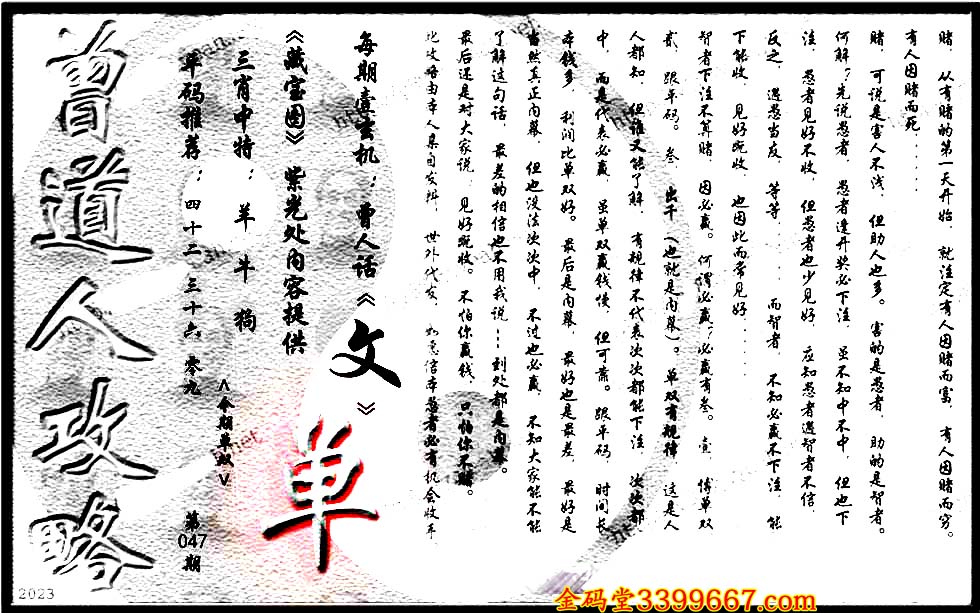 赌、从有赌的第一天开始、就注定有人因赌而富、有人因赌而穷。
有人因赌而死......
赌、可说是害人不浅、但助人也多。害的是愚者、助的是智者。
何解?先说愚者、愚者逢开奖必下注、虽不知中不中、但也下
注、愚者见好不收、但愚者也少见好、应知愚者遇智者不信、
反之、遇愚当友、等等......而智者、不知必赢不下注、能
下能收、见好既收、也因此而常见好......
智者下注不算赌、因必赢。何谓必赢?必赢有叁。壹、博单双
贰、跟平码。叁、出千(也就是内幕)。单双有规律、这是人
人都知、但谁又能了解、有规律不代表次次都能下注、次次都
中、而是代表必赢、虽单双赢钱慢、但可靠。跟平码、时间长
本钱多、利润比单双好。最后是内幕、最好也是最差、最好是
当然真正内幕、但也没法次次中、不过也必赢、不知大家能不能
了解这句话、最差的相信也不用我说---到处都是内幕。
最后还是对大家说、见好既收。不怕你赢钱、只怕你不赌。
此攻略由本人亲自发辨、世外代友、如意信本愚者必有机会收年
每期壹玄机:曾人话《文》
《藏宝图》紫光处内容提供
三肖中特:羊牛狗
单码推荐:四十二 三十六 零九
<今期单双>
单
第047期
曾道人攻略
2023
金码堂3399667.com